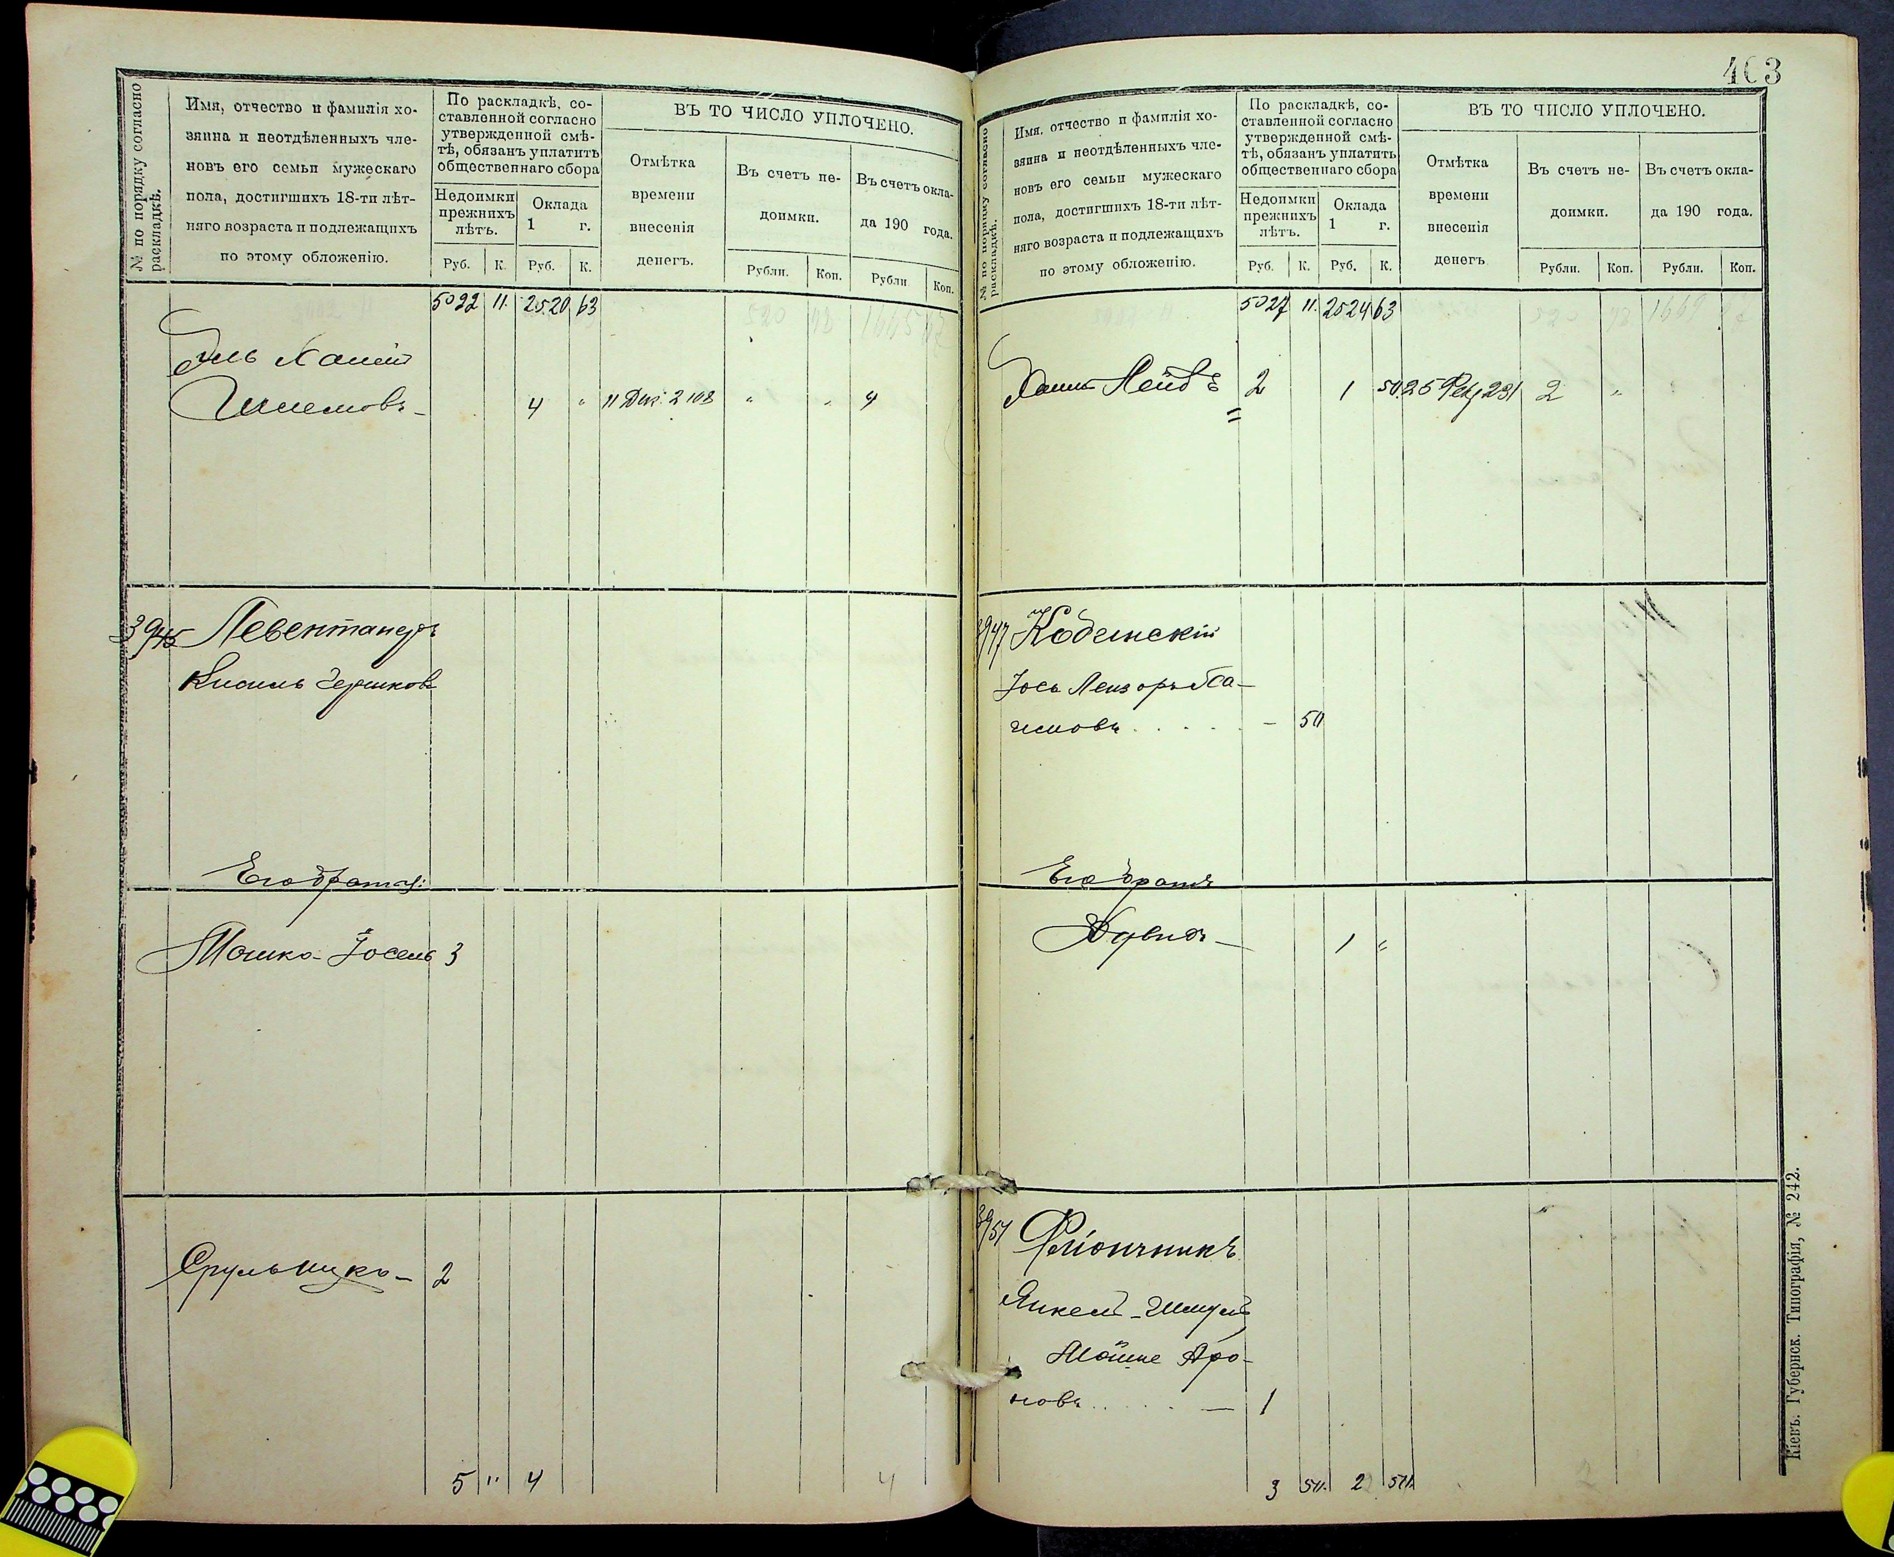 № по порядку согласно
раскладкѣ.
Имя, отчество и фамилія хо-
зяина и неотдѣленныхъ чле-
новъ его семьи мужескаго
пола, достигшихъ 18-ти лѣт-
няго возраста и подлежащихъ
по этому обложенію.
По раскладкѣ, со-
ставленной согласно
утвержденной смѣ-
тѣ, обязанъ уплатить
общественнаго сбора
Недоимки
прежнихъ
лѣтъ.
Оклада
1 г.
Руб. К. Руб. К.
ВЪ ТО ЧИСЛО УПЛОЧЕНО.
Отмѣтка
времени
внесенія
денегъ.
Въ счетъ не-
доимки.
Въ счетъ окла-
да 190 года.
Рубли. Коп. Рубли Коп.
5022 11. 2520 63
Эль Хаимъ
Шлемовъ 4 " 11 Дек. 2108 " " 4
3945 Левентандъ
Кисиль Гершковъ
Его братья:
Мошко-Іосель 3
Срульицко- 2
5 " 4 4
403
№ по порядку согласно
раскладкѣ.
Имя, отчество и фамилія хо-
зяина и неотдѣленныхъ чле-
новъ его семьи мужескаго
пола, достигшихъ 18-ти лѣт-
няго возраста и подлежащихъ
по этому обложенію.
По раскладкѣ, со-
ставленной согласно
утвержденной смѣ-
тѣ, обязанъ уплатить
общественнаго сбора
Недоимки
прежнихъ
лѣтъ.
Оклада
1 г.
Руб. К. Руб. К.
ВЪ ТО ЧИСЛО УПЛОЧЕНО.
Отмѣтка
времени
внесенія
денегъ
Въ счетъ не-
доимки.
Въ счетъ окла-
да 190 года.
Рубли. Коп. Рубли. Коп.
5027 11. 2524 63
Лейбъ 2 1 50 2 "
3947 Кодинскій
Іось Лейзоръ
- 50
Его братъ
Давидъ- 1 "
3951
Янкель-Шмуль
Мойше Аро-
новъ..... — 1
3 50 2 50
Кіевъ. Губернск. Типографія, № 242.